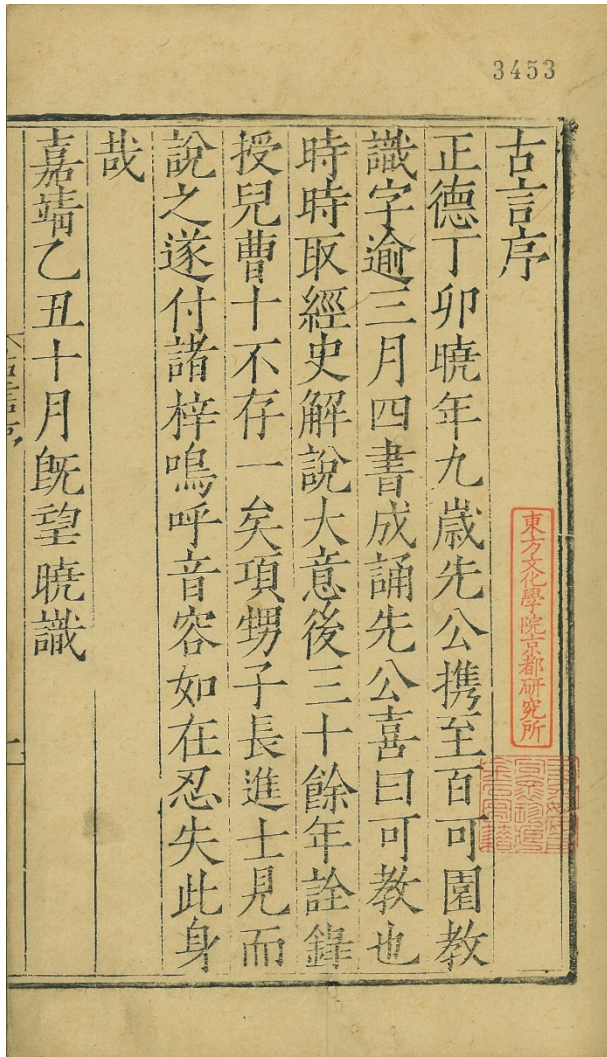 3453
古言序
正德丁卯曉年九歲先公携至百可園教
識字逾三月四書成誦先公喜曰可教也
時時取經史解說大意後三十餘年詮錄
授兒曹十不存一矣項甥子長進士見而
說之遂付諸梓嗚呼音容如在忍失此身
哉
嘉靖乙丑十月旣望曉識
東方文化學院京都研究所